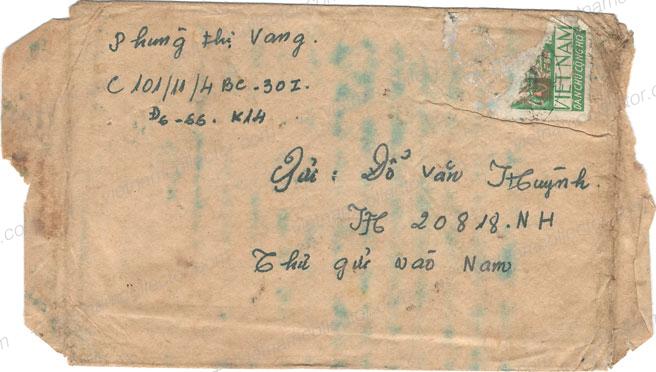 Phung thị Vang.
C 101/11/4 BC-30I.
Đ6-66. K14
VIỆT NAM
DÂN CHỦ CỘNG HÒA
Gửi: Đỗ văn Huỳnh.
JH 20818.NH
Thư gửi vào Nam